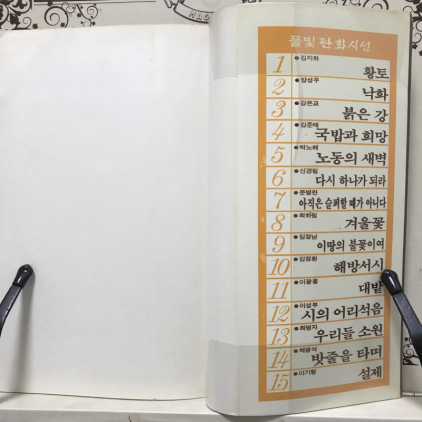 풀빛판화시선
1 ●김지하
황토
2 ●양성우
낙화
3 ●강은교
붉은 강
4 ●김준태
국밥과 희망
5 ●박노해
노동의 새벽
6 ●신경림
다시 하나가 되라
7 ●문병란
아직은 슬퍼할 때가 아니다
8 ●최하림
겨울꽃
9
이땅의 불꽃이여
10 ●김정환
해방서시
11
대밭
12 ●이성부
시의 어리석음
13
우리들 소원
14
밧줄을 타며
15
설제